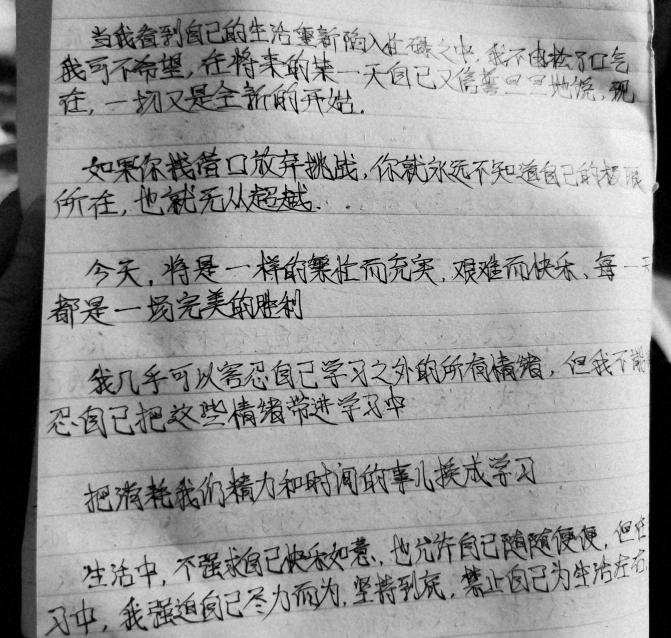 当我看到自己的生活重新陷入忙碌之中,我不由松了口气
我可不希望,在将来的某一天自己又信誓旦旦地说,现
在,一切又是全新的开始.
如果你找借口放弃挑战,你就永远不知道自己的极限
所在,也就无从超越.
今天,将是一样的繁忙而充实,艰难而快乐、每一天
都是一场完美的胜利
我几乎可以容忍自己学习之外的所有情绪,但我不能
忍自己把这些情绪带进学习中
把消耗我们精力和时间的事儿换成学习
生活中,不强求自己快乐如意,也允许自己随随便便,但在
习中,我强迫自己尽力而为,坚持到底,禁止自己为生活左右.